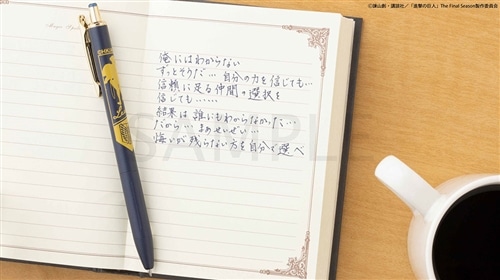 ©諫山創・講談社/「進撃の巨人」The Final Season製作委員会
俺にはわからない
ずっとそうだ…自分の力を信じても…
信頼に足る仲間の選択を
信じても……
結果は誰にもわからなかった…
だから…まぁせいぜい…
悔いが残らない方を自分で選べ
SAMPLE